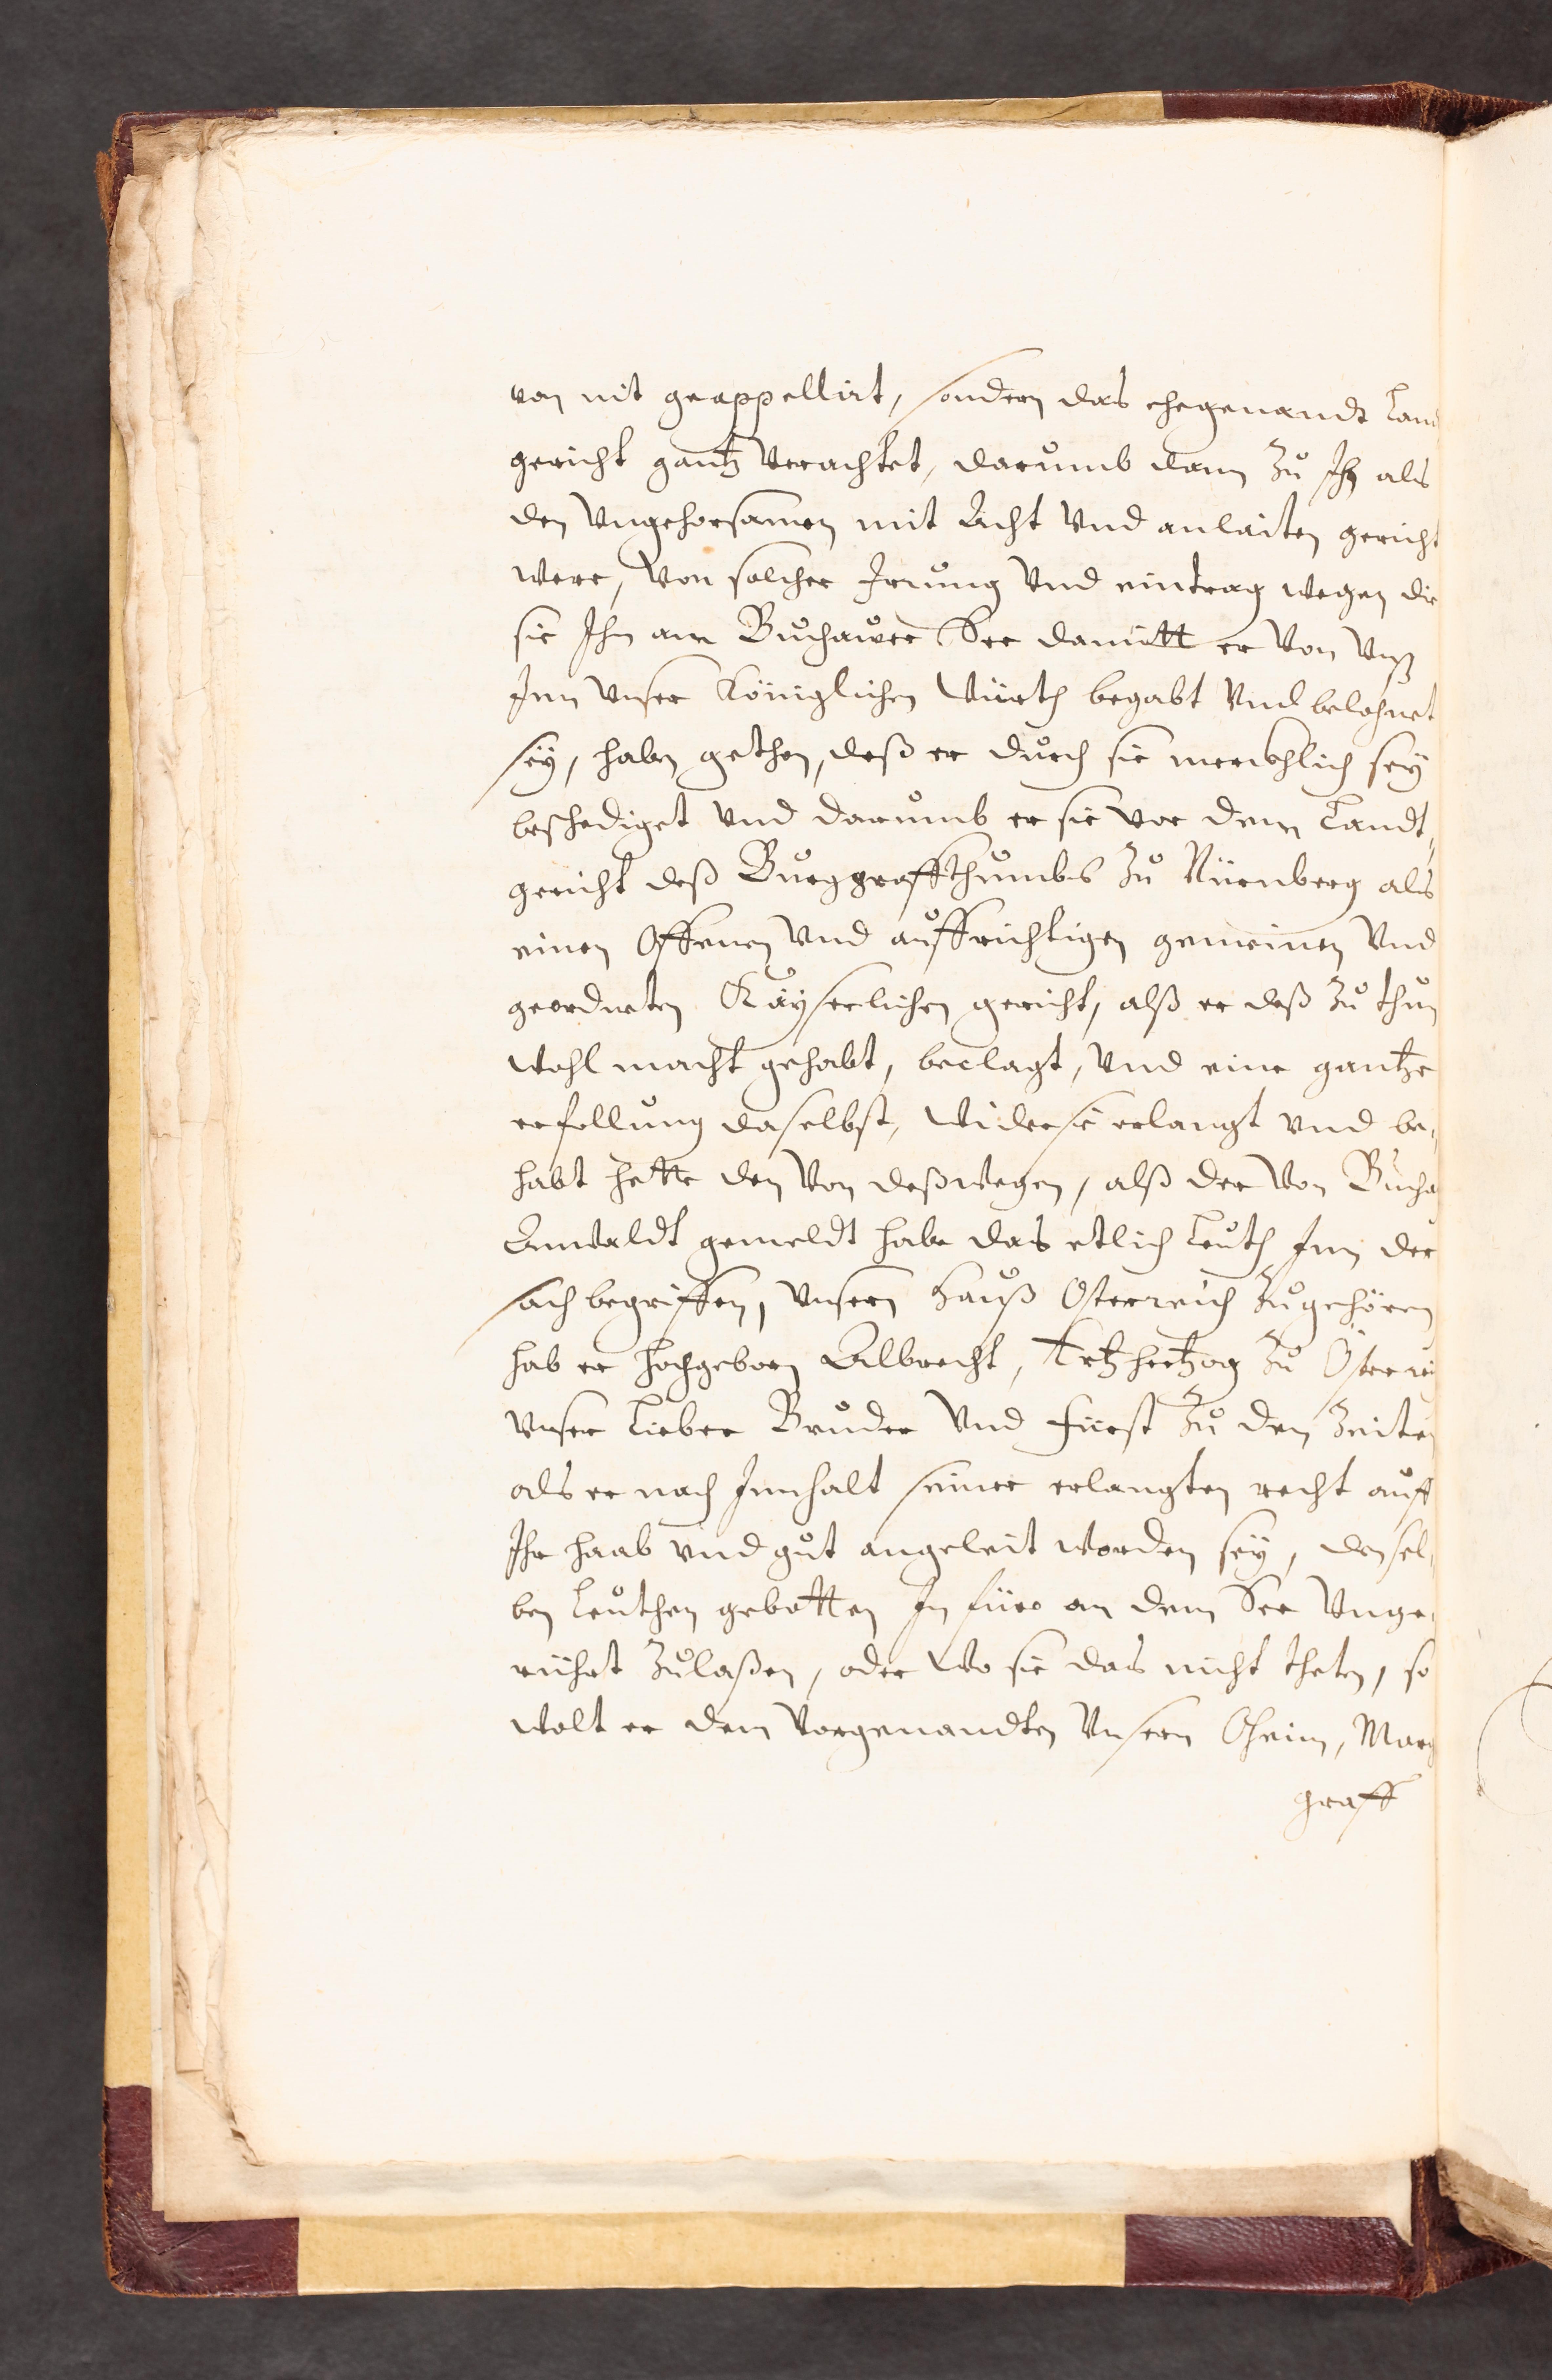 von nit geappellirt, sondern das ehegenandt Land
gericht gantz verachtet, darumb dann Zu Ihn als
den Vngehorsamen mit Acht Vnd anlaiten gericht
were, Von solcher Irrung Vnd eintrag wegen die
sie Ihm am Buchawer See damitt er Von Vnß
Inn Vnser Königlichen Würth begabt Vnd belehnet
sey, haben gethon, deß er durch sie merckhlich sey
beschediget Vnd darumb er sie vor dem Landt,
gericht deß Burggraffthumbs Zu Nürnberg als
einen Offenen Vnd auffrichtigen gemeinen Vnd
geordneten Kayserlichen gericht, alß er deß Zu thun
wohl macht gehabt, beclagt, Vnd eine gantze
erfollung daselbst, wider sie erlangt Vnd be,
habt hette den Von deßwegen, alß der Von Bucha
Anwaldt gemeldt habe das etlich Leuth Inn der
sach begriffen, Vnsern Hauß Osterreich Zugehören
hab er hochgeborn Albrecht, Ertzhertzog Zu Österrei
Vnser Lieber Bruder Vnd Fürst Zu den Zeiten
als er nach Innhalt seiner erlangten recht auff
Ihr haab Vnd gut angeleit worden sey, denfel,
ben Leuthen gebotten In füro an dem See Vnge,
rühet Zulaßen, oder wo sie das nicht theten, so
wolt er dem Vorgenandten Vnsern Oheim, Marg
graff